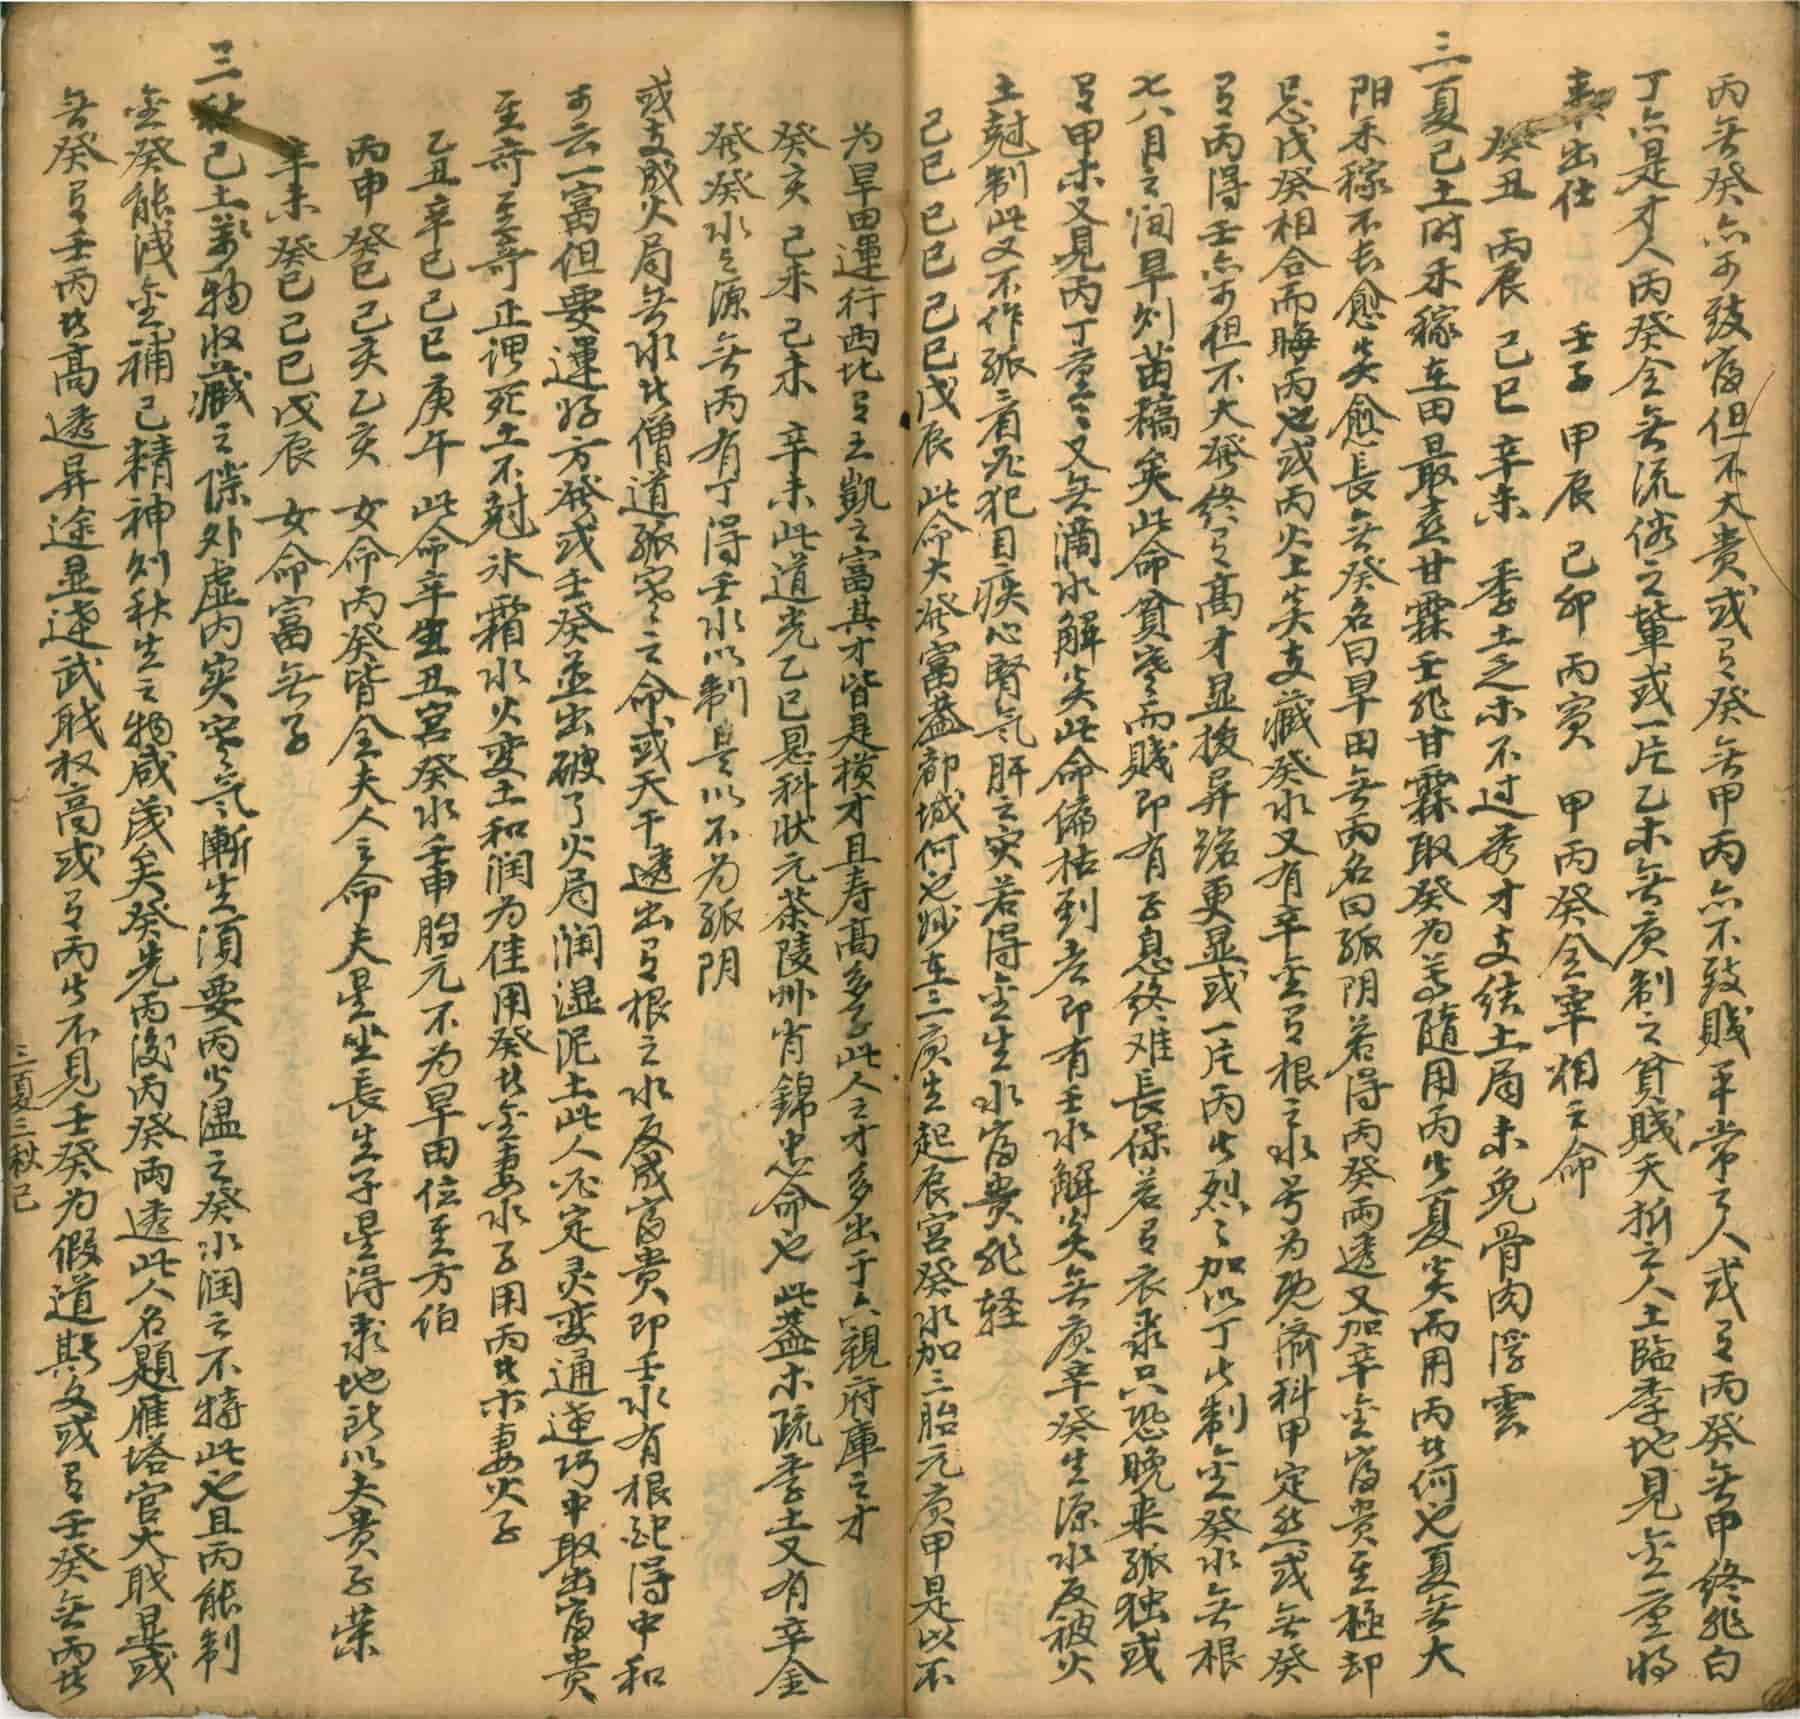 丙無癸亦可致富但不大貴或有癸無甲丙亦不致賤平常人或有丙癸無甲終非白
丁亦是才人丙癸全無流俗之輩或一片乙木無庚制之貧賤夭折之人土臨季地見金重將
來出仕　壬子　甲辰　己卯　丙寅　甲丙癸全宰相之命
癸丑　丙辰　己巳　辛未　季土乏木不过秀才支結土局未免骨肉浮雲
三夏己土时禾稼在田最喜甘霖壬非甘霖取癸为要隨用丙火夏炎而用丙者何也夏無大
阳禾稼不长愈炎愈長無癸名曰旱田無丙名曰孤阴若得丙癸兩透又加辛金富貴至極却
忌戊癸相合而晦丙也或丙火土炎支藏癸水又有辛金有根之水号为既济科甲定然或無癸
有丙得壬亦可但不大發終有高才显掇异路更显或一片丙火烈烈加以丁火制金癸水無根
七八月之间旱则苗稿矣此命貧寒而賤即有子息終难長保若有衣录只恐晚来孤独或
有甲木又見丙丁重重又無滴水解炎此命偏枯到老即有壬水解炎無庚辛癸生源水反被火
土尅制此又不作孤二者必犯目疾心腎气肝之灾若得金生水富貴非轻
己巳　己巳　己巳　戊辰　此命大發富蓋都城何也妙在三庚生起辰宮癸水加三胎元庚申是以不
为旱田運行西北有王凱之富其才皆是横才且寿高多子此人之才多出于六親府庫之才
癸亥　己未　己未　辛未　此道光乙巳恩科状元茶陵州肖錦忠命也　此蓋木疏季土又有辛金
發癸水之源無丙有丁得壬水以制是以不为孤阴
或支成火局無水者僧道孤寒之命或天干透出有根之水反成富貴即壬水有根配得中和
可云一富但要運好方發或壬癸並出破了火局润湿泥土此人必定灵变通達巧中取出富貴
至奇至奇正謂死土不尅氷霜水火变土和润为佳用癸者金妻水子用丙者木妻火子
乙丑　辛巳　己巳　庚午　此命辛坐丑宮癸水壬申胎元不为旱田位至方伯
丙申　癸巳　己亥　乙亥　女命丙癸皆全夫人之命夫星坐長生子星得录地所以夫貴子荣
辛未　癸巳　己巳　戊辰　女命富無子
三秋己土萬物收藏之际外虚内实寒气漸生須要丙火温之癸水润之不特此也且丙能制
金癸能洩金補己精神则秋生之物咸茂矣癸先丙後丙癸兩透此人名題雁塔官大職显或
無癸有壬丙者高透异途显達武職权高或有丙火不見壬癸为假道斯文或有壬癸無丙者
三夏三秋己